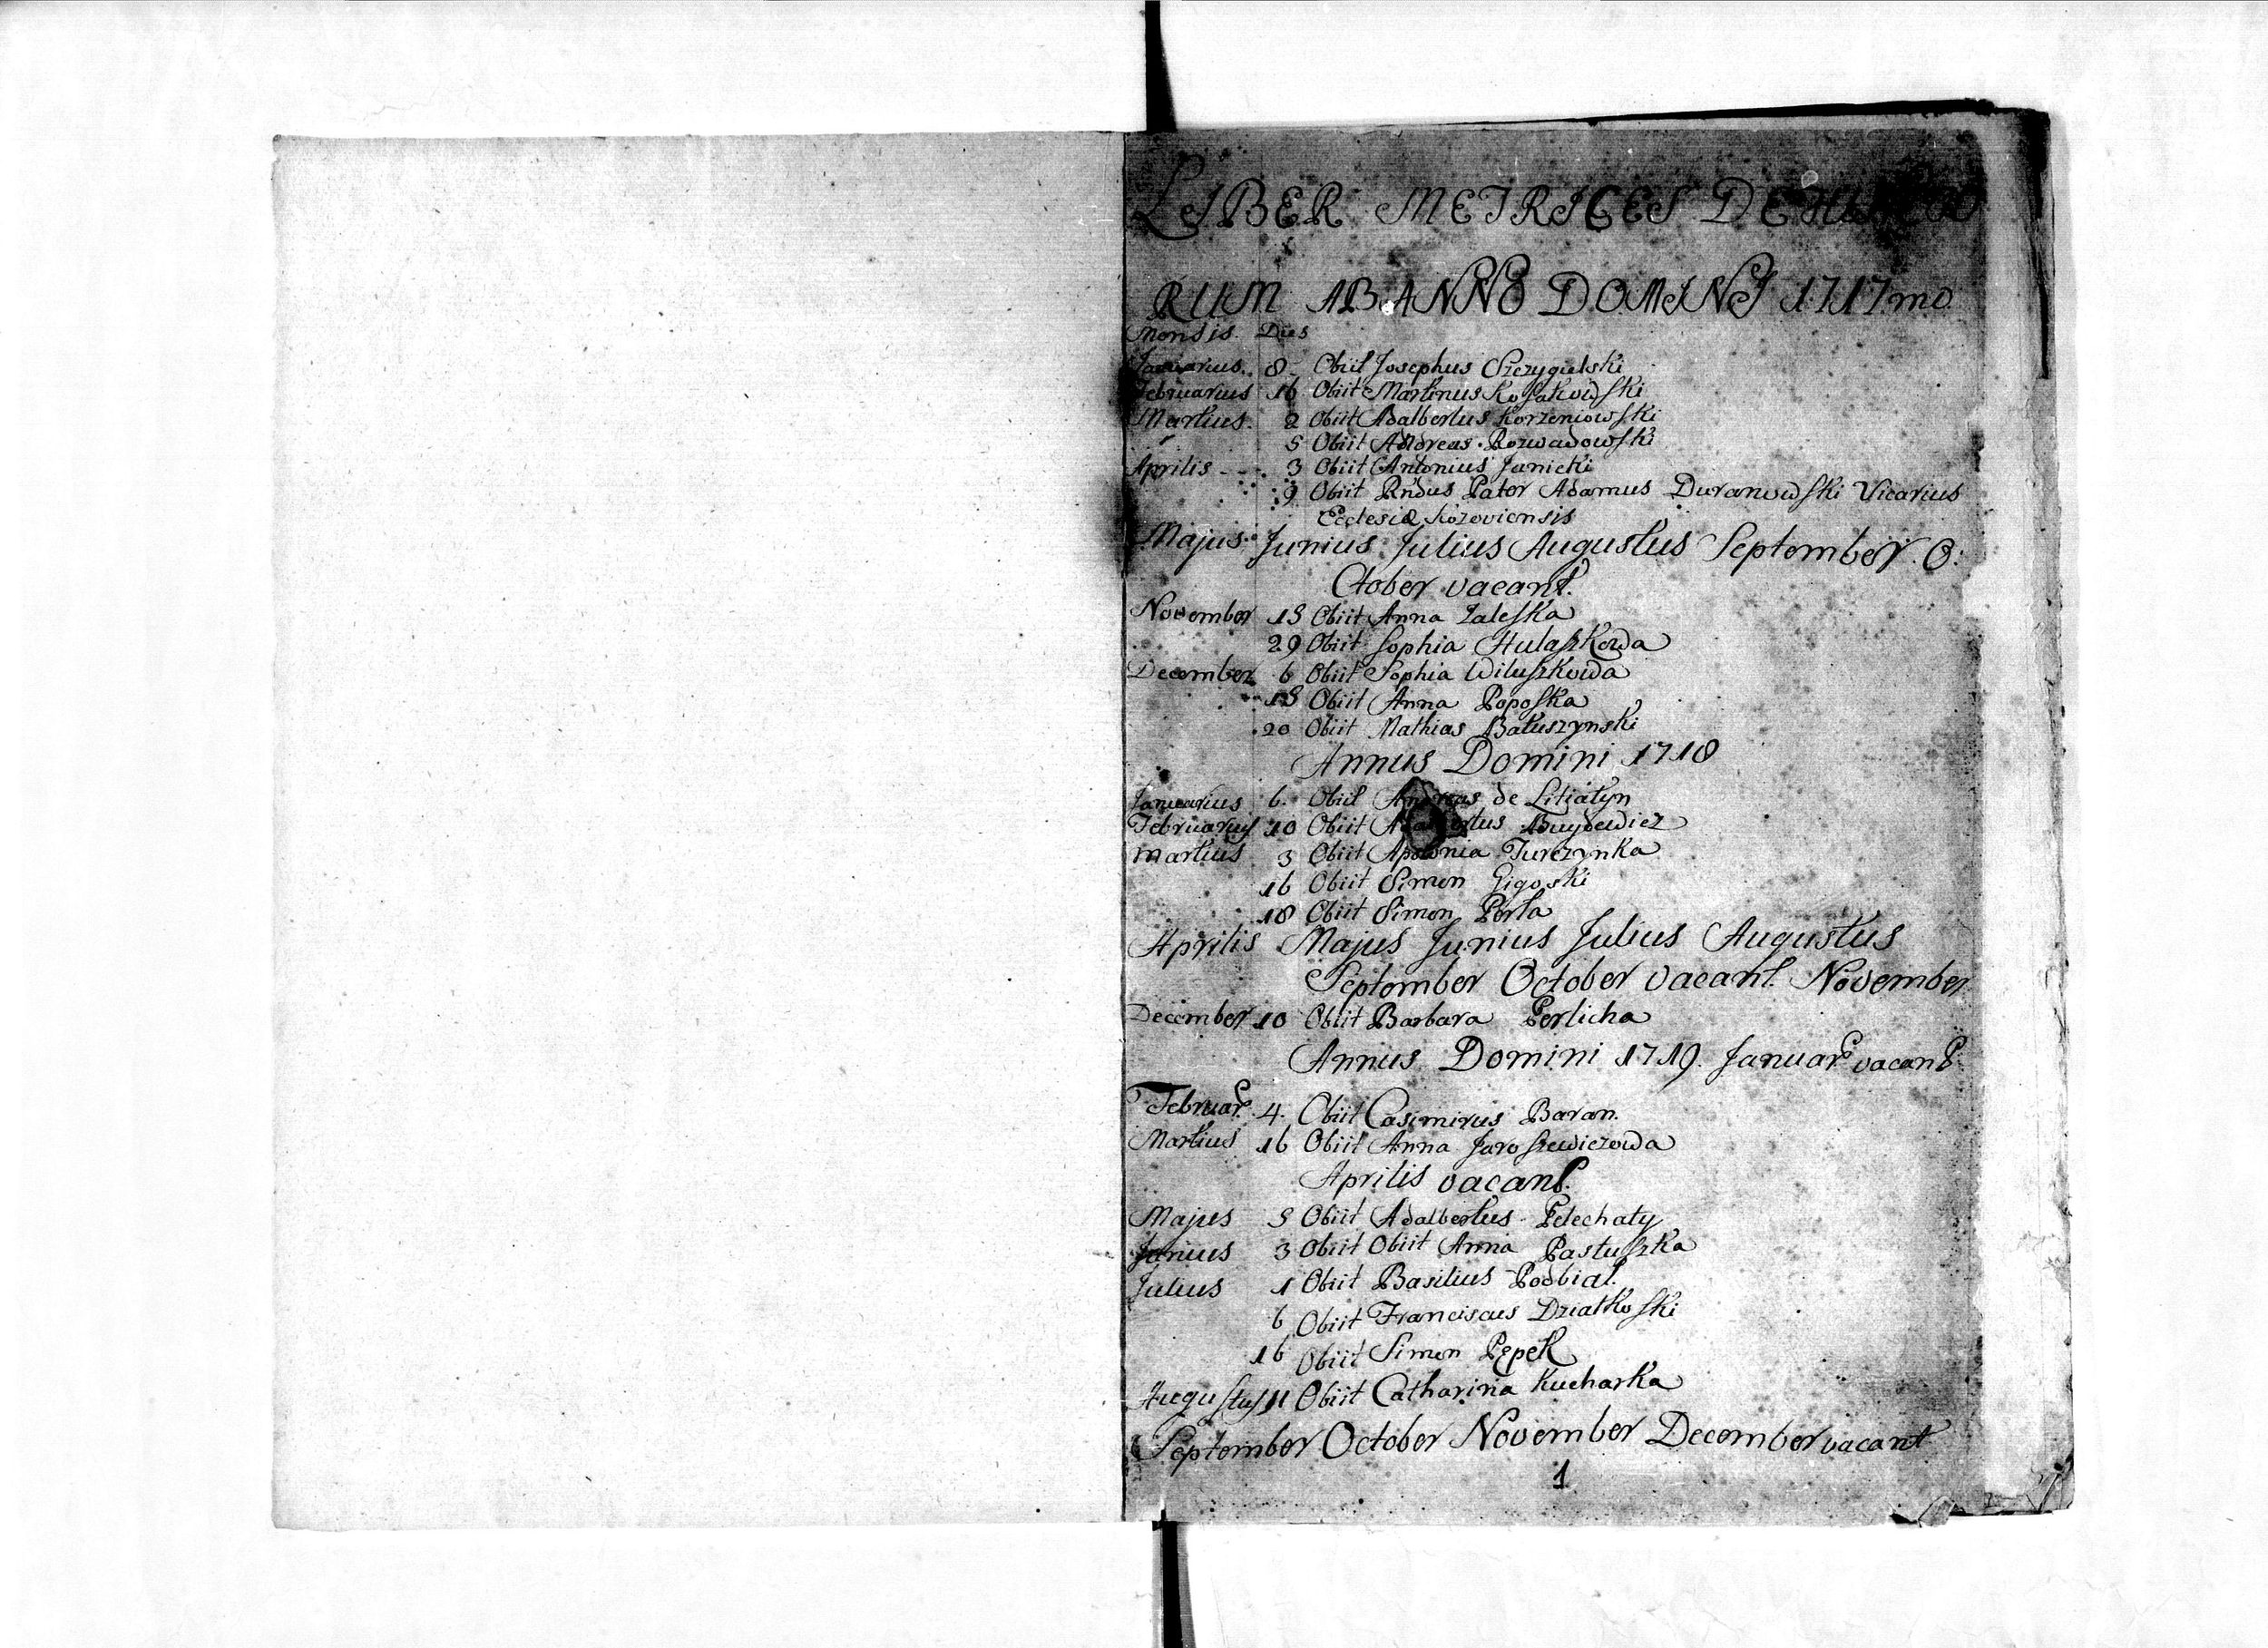 LIBER METRICES
RUM AB ANNO DOMINI 1717mo.
Mensis Dies
Januarius 8 Obiit Josephus Szczygielski
Februarius 16 Obiit Martinus Kosakowski
Martius 2 Obiit Adalbertus Korzeniowski
5 Obiit Andreas Rozwadowski
Aprilis 3 Obiit Antonius Janicki
9 Obiit Rndus Pater Adamus Duranowski Vicarius
Ecclesiæ Kozoviensis
Majus Junius Julius Augustus September O:
Ctober vacant.
November 15 Obiit Anna Zaleska
29 Obiit Sophia Hulaszkowa
December 6 Obiit Sophia Wiluszkowa
15 Obiit Anna Poposka
20 Obiit Mathias Batuszynski
Annus Domini 1718
Januarius 6 Obiit Andreas de Litiatyn
Februarius 10 Obiit Buydewicz
Martius 3 Obiit Apolonia Turczynka
16 Obiit Simon Gigoski
18 Obiit Simon Perla
Aprilis Majus Junius Julius Augustus
September October vacant. November
December 10 Obiit Barbara Perlicha
Annus Domini 1719. Januar. vacant.
Februar. 4. Obiit Casimirus Baran.
Martius 16 Obiit Anna Jaroszewiczowa
Aprilis vacant.
Majus 5 Obiit Adalbertus Pelechaty
Junius 3 Obiit Obiit Anna Pastuszka
Julius 1 Obiit Basilius Podbial.
6 Obiit Franciscus Dziatkoski
16 Obiit Simon Pępek
Augustus 11 Obiit Catharina Kucharka
September October November December vacant
1